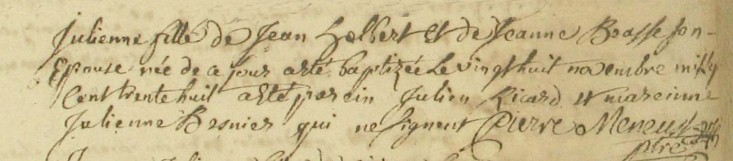 Julienne fille de Jean Holbert et de Jeanne Brasse son
Epouse née de ce jour a eté baptizée Le vingt huit novembre mil sept
Cent trente huit a eté parein Julien Ricard et mareinne
Julienne Besnier qui ne signent Pierre Meneust
ptre